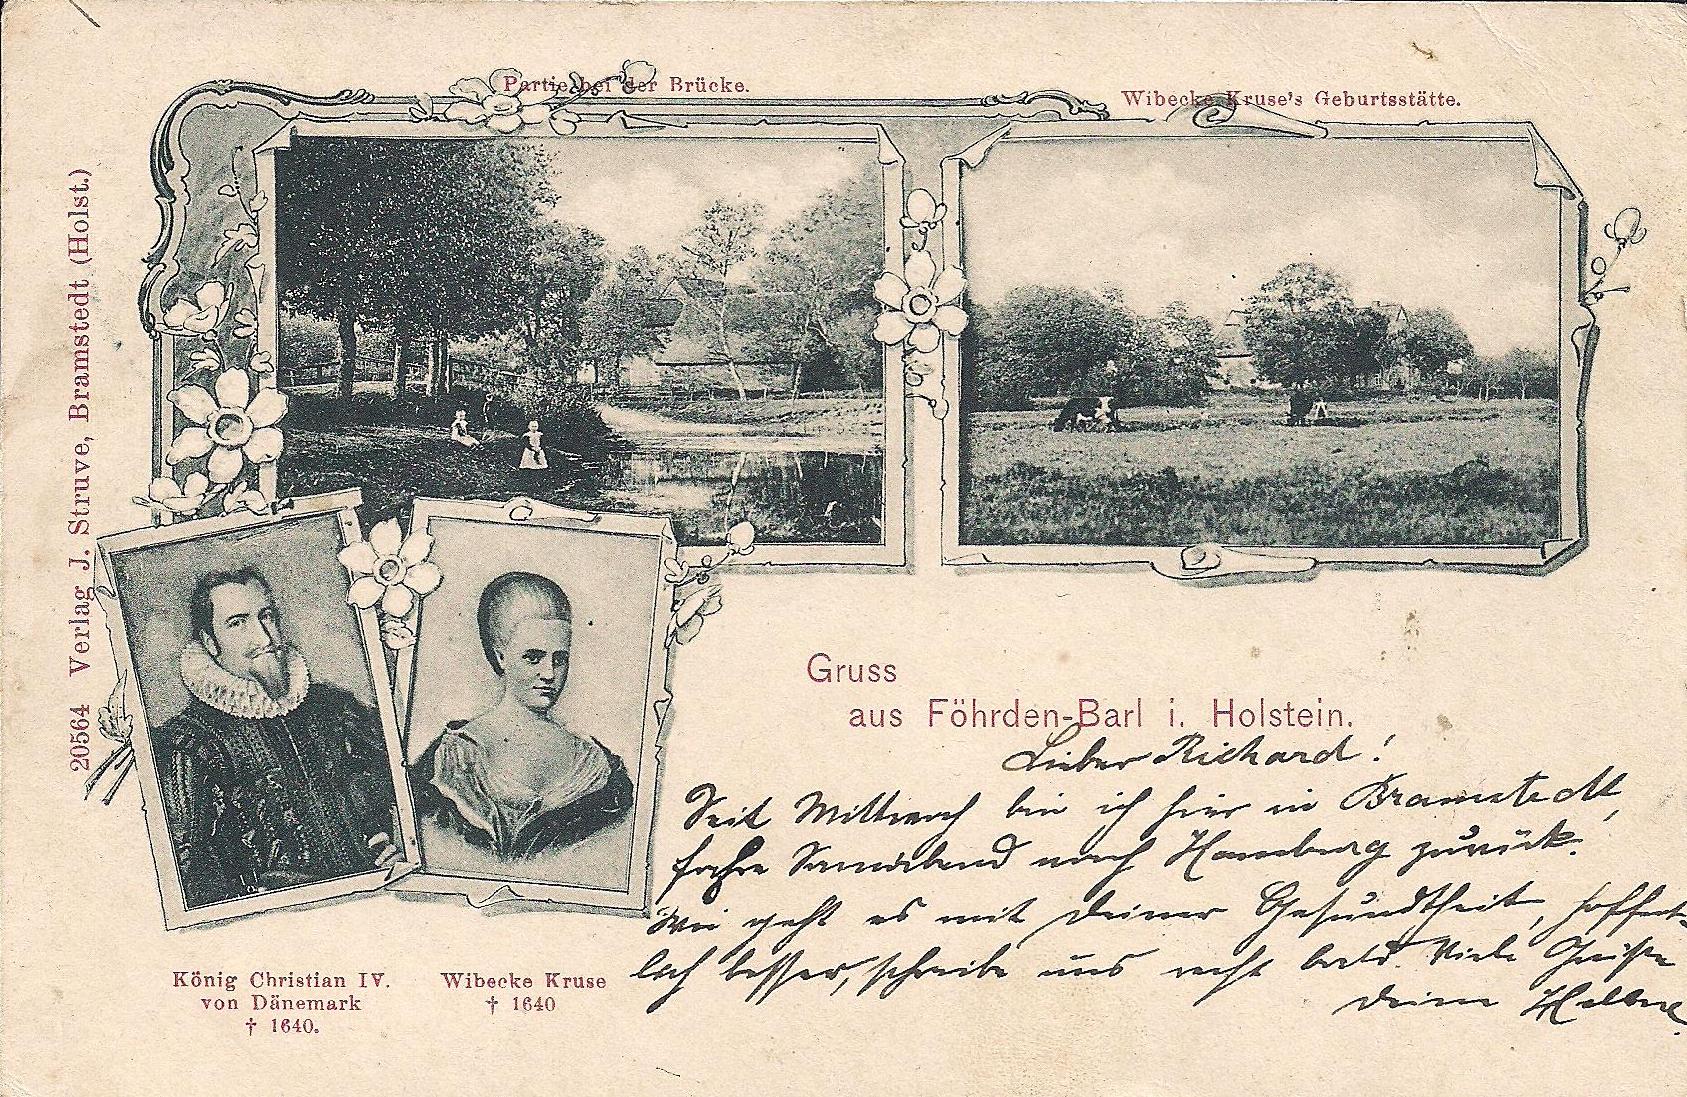 Partie bei der Brücke.
Wibecke Kruse's Geburtsstätte.
20564 Verlag J. Struve, Bramstedt (Holst.)
Gruss
aus Föhrden-Barl i. Holstein.
Lieber Richard!
Seit Mittwoch bin ich hier in Bramstedt,
fahre Sonnabend nach Hamburg zurück.
Wie geht es mit deiner Gesundtheit, hoffent-
lich besser, schreibe uns recht bald. Viele Grüße
deine
König Christian IV.
von Dänemark
† 1640.
Wibecke Kruse
† 1640